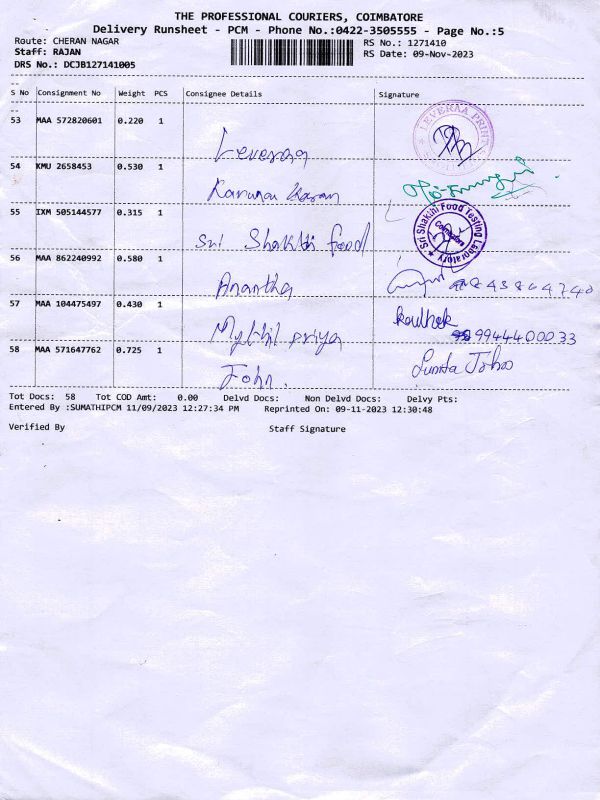 THE PROFESSIONAL COURIERS, COIMBATORE
Delivery Runsheet - PCM - Phone No.:0422-3505555 - Page No.:5
Route: CHERAN NAGAR RS No.: 1271410
Staff: RAJAN RS Date: 09-Nov-2023
DRS No.: DCJB127141005
S No Consignment No Weight PCS Consignee Details Signature
53 MAA 572820601 0.220 1 Leveraa LEVERAA PRIN
54 KMU 2658453 0.530 1 Karunai Karan
55 IXM 505144577 0.315 1 Sri Shakthi food Sri Shakthi Food Testing Laboratory Coimbatore
56 MAA 862240992 0.580 1 Anantha
57 MAA 104475497 0.430 1 Mythil priya 9944400033
58 MAA 571647762 0.725 1 John. Sunita John
Tot Docs: 58 Tot COD Amt: 0.00 Delvd Docs: Non Delvd Docs: Delvy Pts:
Entered By :SUMATHIPCM 11/09/2023 12:27:34 PM Reprinted On: 09-11-2023 12:30:48
Verified By Staff Signature